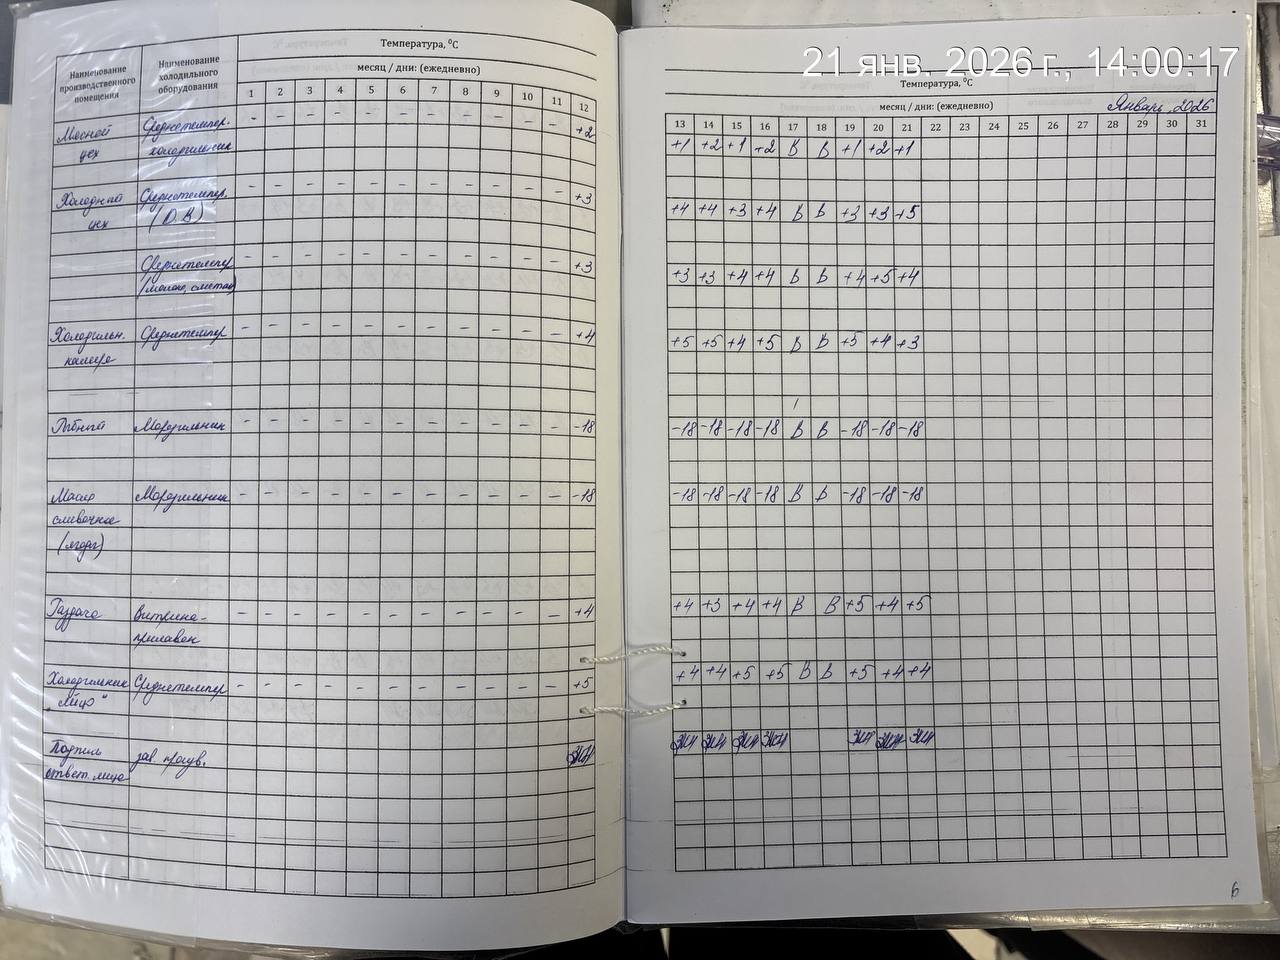 21 янв. 2026 г., 14:00:17
Наименование производственного помещения
Наименование холодильного оборудования
Температура, °С
месяц / дни: (ежедневно)
1 2 3 4 5 6 7 8 9 10 11 12
Мясной цех Среднетемпер. холодильник - - - - - - - - - - - +2
Холодный цех Среднетемпер. - - - - - - - - - - - +3
Среднетемпер. - - - - - - - - - - - +3
Холодильн. камера Среднетемпер - - - - - - - - - - - +4
Рыбный Морозильник - - - - - - - - - - - -18
Масло сливочное (ягоды) Морозильник - - - - - - - - - - - -18
Раздача Витрина-прилавок - - - - - - - - - - - +4
Холодильник "Яйцо" Среднетемпер - - - - - - - - - - - +5
Подпись ответ. лица зав. произв.
Температура, °С
месяц / дни: (ежедневно) Январь 2026
13 14 15 16 17 18 19 20 21 22 23 24 25 26 27 28 29 30 31
+1 +2 +1 +2 В В +1 +2 +1
+4 +4 +3 +4 В В +3 +3 +5
+3 +3 +4 +4 В В +4 +5 +4
+5 +5 +4 +5 В В +5 +4 +3
-18 -18 -18 -18 В В -18 -18 -18
-18 -18 -18 -18 В В -18 -18 -18
+4 +3 +4 +4 В В +5 +4 +5
+4 +4 +5 +5 В В +5 +4 +4
6